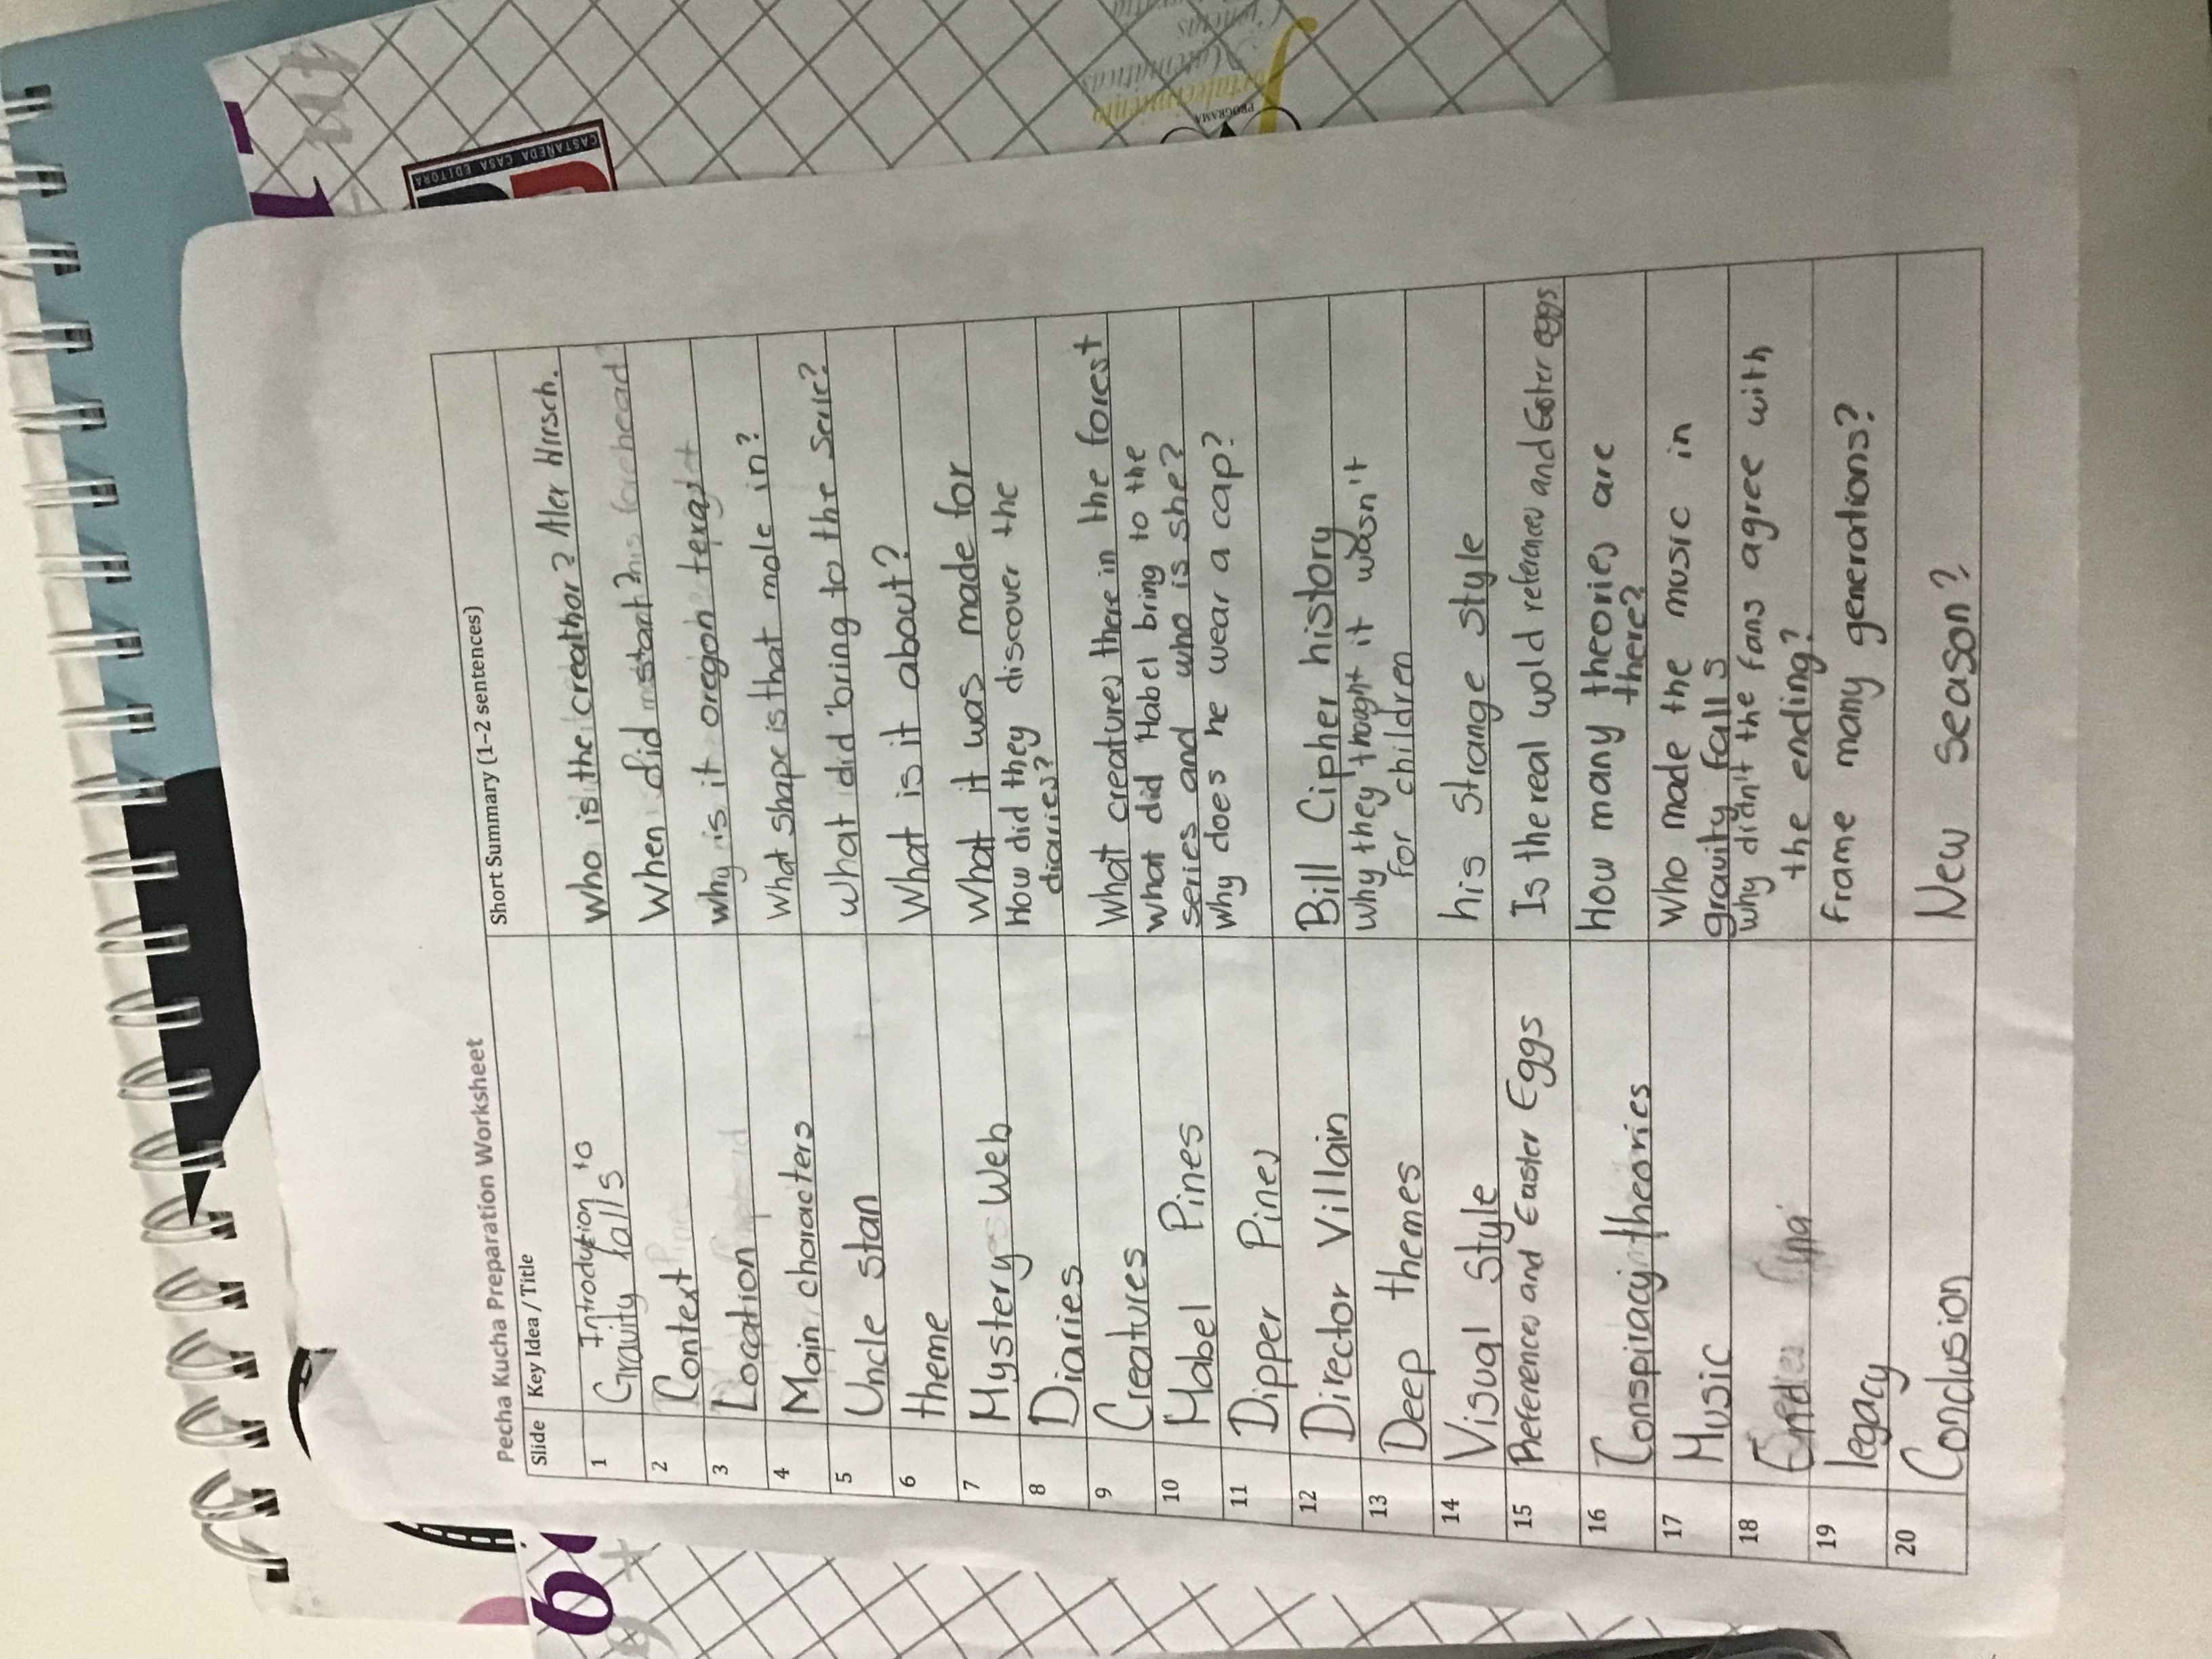 Pecha Kucha Preparation Worksheet
Slide Key Idea / Title Short Summary (1–2 sentences)
1 Introdution to Gravity falls Who is the creathor? Alex Hirsch.
2 Context When did start?
3 Location why is it oregon
4 Main characters What shape is that mole in?
5 Uncle Stan what did bring to the serie?
6 theme What is it about?
7 Mystery Web What it was made for
8 Diaries How did they discover the
diaries?
9 Creatures What creatures there in the forest
10 Mabel Pines what did Mabel bring to the
series and who is she?
11 Dipper Pines why does he wear a cap?
12 Director Villain Bill Cipher history
13 Deep themes why they thought it wasn't
for children
14 Visual Style his strange style
15 References and Easter Eggs Is the real wold references and Ester eggs
16 Conspiracy theories How many theories are
there?
17 Music who made the music in
gravity falls
18 why didn't the fans agree with
the ending?
19 legacy frame many generations?
20 Conclusion New season?
CASTAÑEDA CASA EDITORA
PROGRAMA